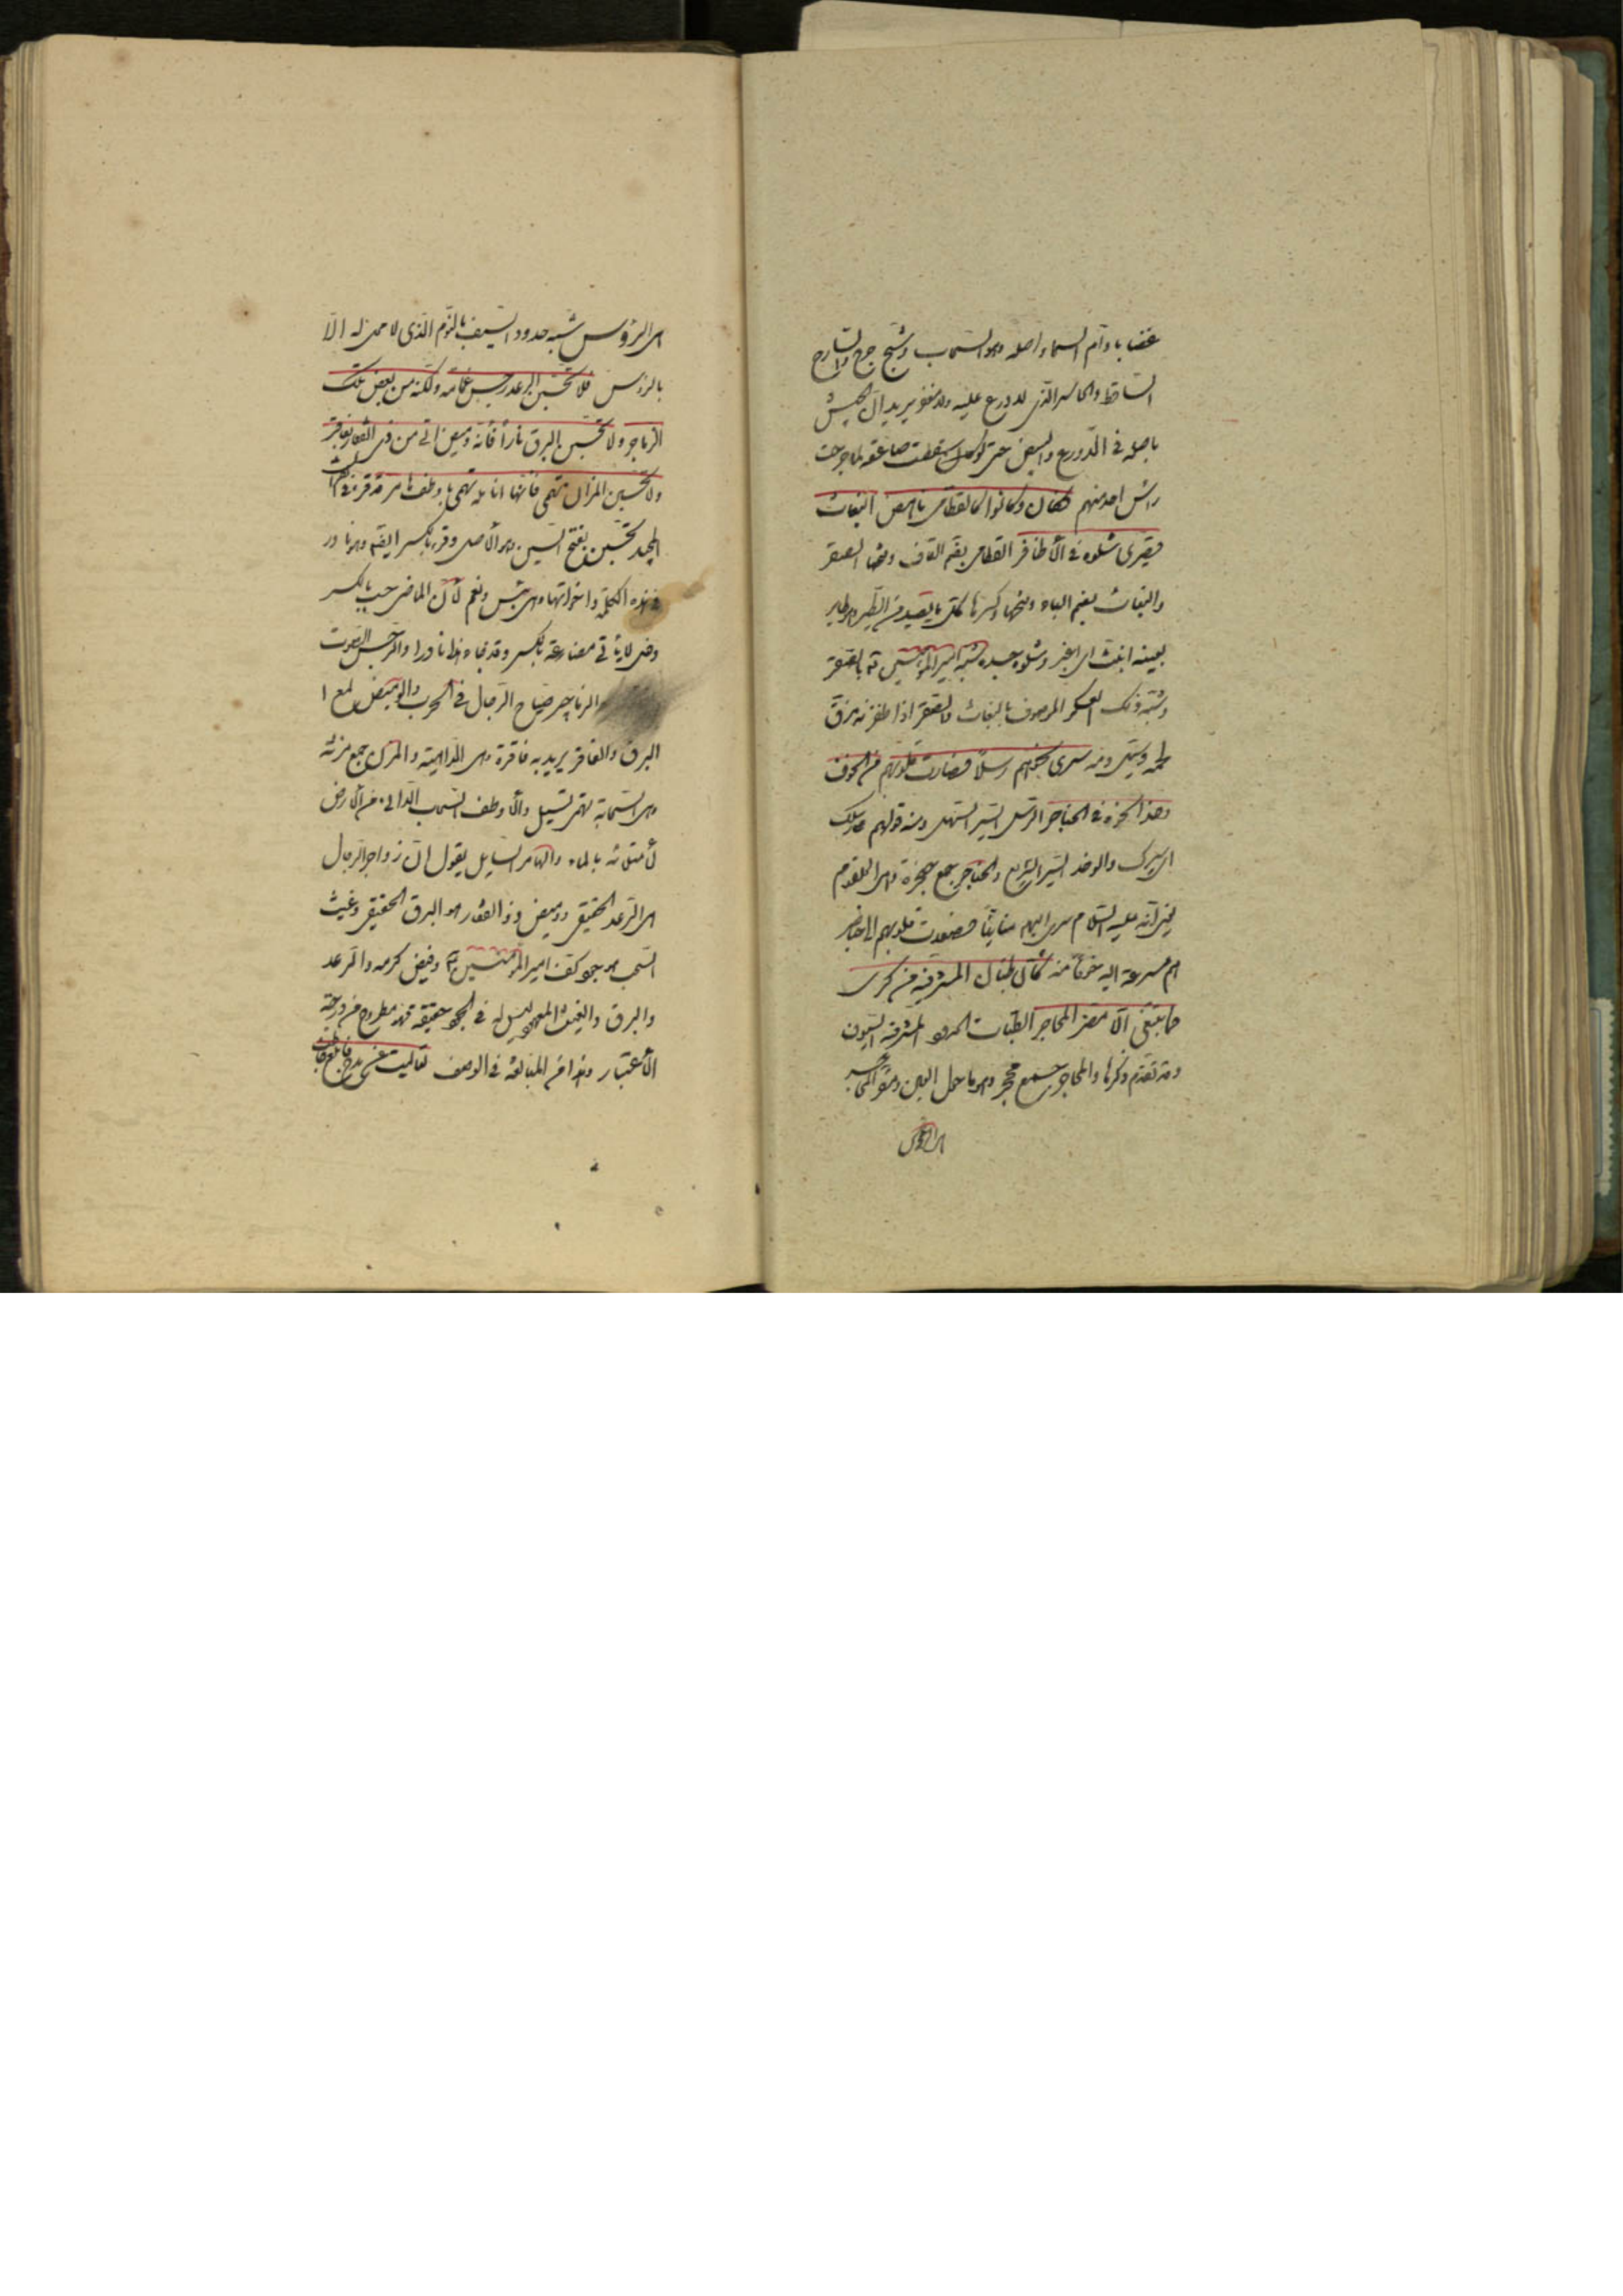 غضبا وأم السماء اصله وهو السحاب وشج جرح والسارح
الساقط والحاسر الذى لا درع عليه ولا مغفر يريد ان الجيش
باجمله فى الدروع والبيض حتى لو سقطت صاعقة لما جرحت
راس احد منهم فقال وكانوا كالقطامى ناهض البغاث
فصرى شلوه فى الأظافر القطامى بضم القاف وفتحها الصقر
والبغاث بضم الباء وفتحها وكسرها كل ما يصيد من الطير وهو طاير
بعينه ابغث اى اغبر وشلوه جسده شبه امير المؤمنين ع بالصقر
وشبه ذلك العسكر الموصوف بالبغاث والصقر اذا ظفر به مزق
لحمه ومنه سرى نحوهم رسلا فصارت قلوبهم من الخوف
وخدا نحوه فى الحناجر الرسل السير السهل ومنه قولهم على رسلك
اى سيرك والوخد السير السريع والحناجر جمع حنجرة وهى الحلقوم
يعنى انه عليه السلام سرى اليهم متأنيا فصعدت قلوبهم الى حناجر
هم مسرعة اليه خوفا منه كأن ظباة المشرفية من كرى
فما تبتغى الا مقر المحاجر الظبات الحدود المشرفية السيوف
وقد تقدم ذكرها والمحاجر جمع محجر وهو ما حول العين ومقر المحاجر
هى الرؤس
هى الرؤس شبه حدود السيف بالنوم الذى لا محل له الا
بالرؤس فلا تحسبن الرعد رجس غمامة ولكنه من بعض تلك
الزماجر ولا تحسبن البرق نارا فانه وميض اتى من ذى الفقار بفاقر
ولا تحسبن المزن تهمى فانها انامله تهمى باوطف هامر قد قرئ فى
المجيد تحسبن بفتح السين وهو الأصل وقرئ بالكسر ايضا وهو نادر
فى هذه الكلمة واخواتها وهى يئس ونعم لأن الماضى حسب بالكسر
وفعل لا يأتى مضارعه بالكسر وقد جاء هذا نادرا والرجس الصوت
والزماجر صياح الرجال فى الحرب والوميض لمع ا
البرق والفاقر يريد به فاقرة وهى الداهية والمزن جمع مزنة
وهى السحابة تهمى تسيل والأوطف السحاب الدانى من الأرض
لأمتلائه بالماء والهامر السايل يقول ان زماجر الرجال
هى الرعد الحقيقى ووميض ذو الفقار هو البرق الحقيقى وغيث
السحب هو جود كف امير المؤمنين ع وفيض كرمه والرعد
والبرق والغيث المعهود ليس له فى الجو حقيقة فهو مطروح من درجة
الأعتبار وهذا من المبالغة فى الوصف تعاليت عن مدح فابلغ خاطب